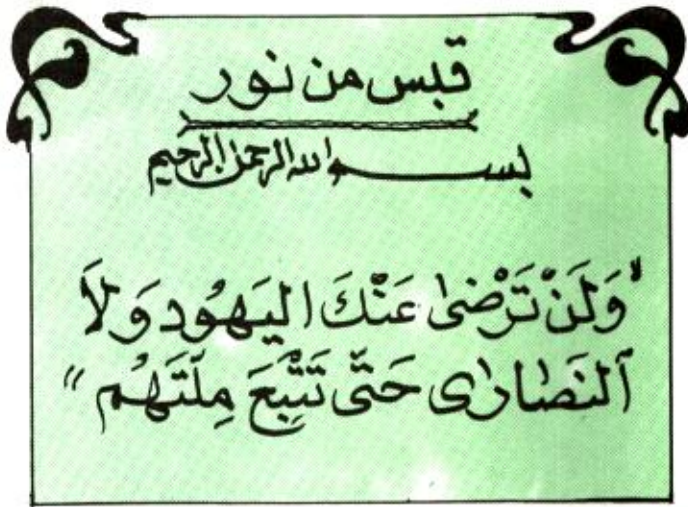 قبس من نور
بسم الله الرحمن الرحيم
"وَلَنْ تَرْضىٰ عَنْكَ اليَهُود وَلاَ
اَلنَصَارٰى حَتّى تَتَّبِعَ مِلّتَهُم"